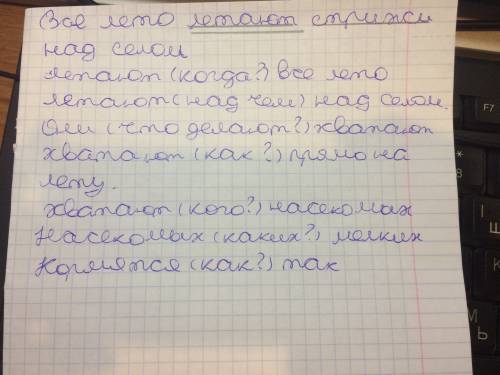 Все лето летают стрижи
над селом
летают (когда?) все лето
летают (над чем) над селом.
Они (что делают?) хватают
хватают (как?) прямо на
лету.
хватают (кого?) насекомах
Насекомых (каких?) мелких
Кормятся (как?) так
F7